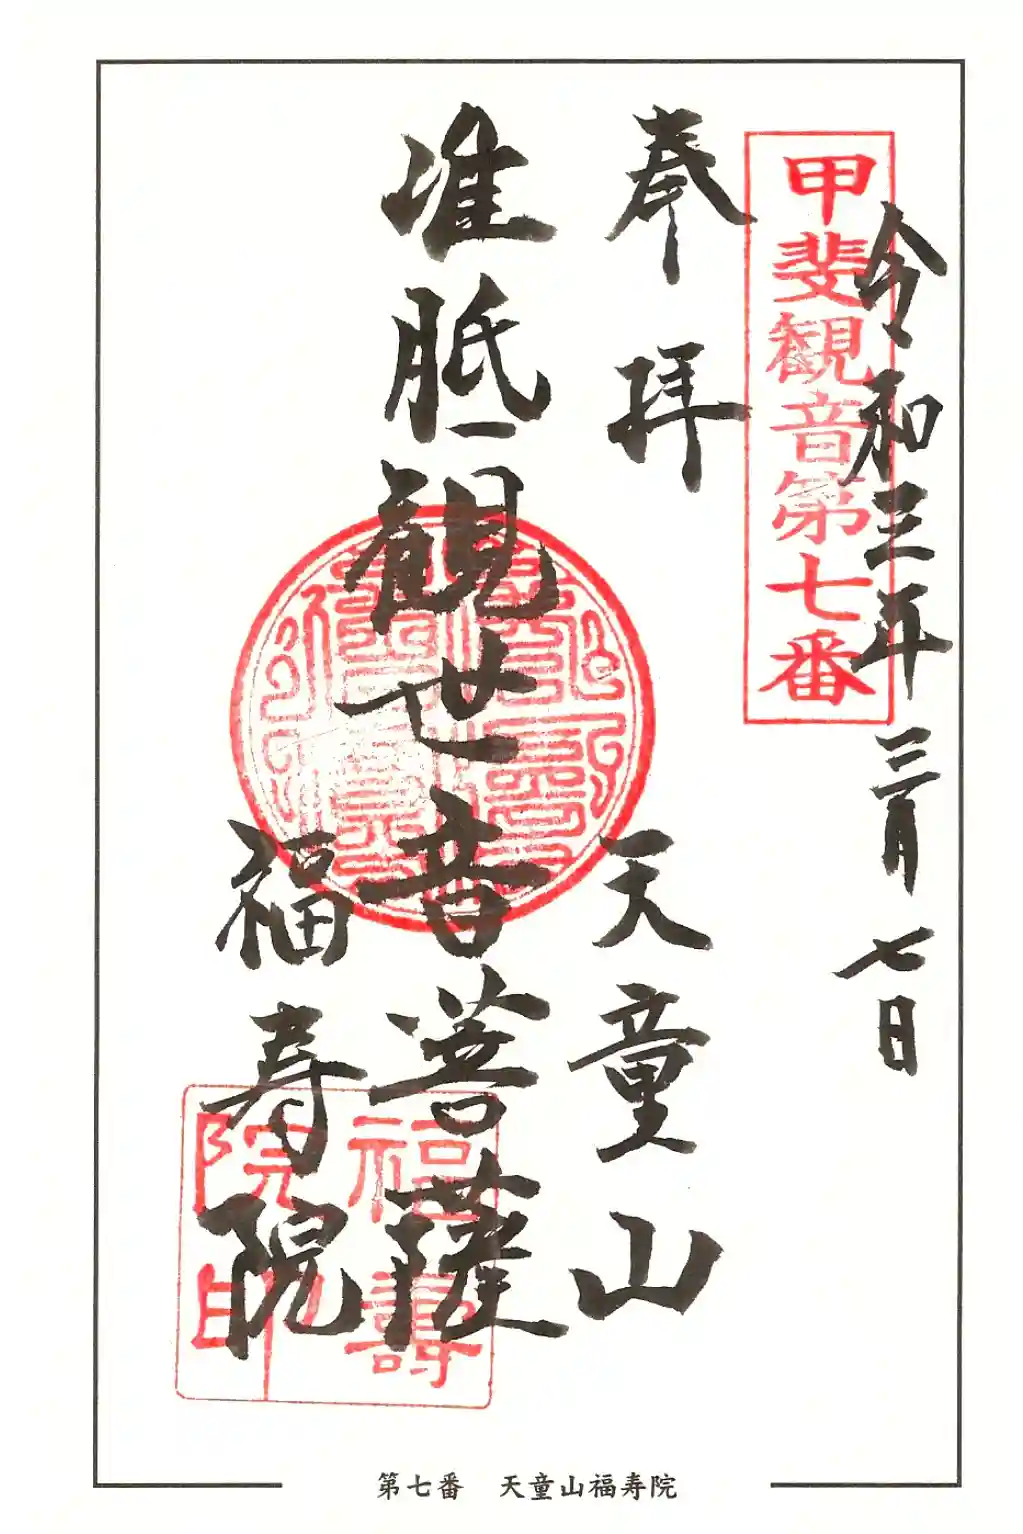 令和三年三月七日
甲斐観音第七番
奉拝
天童山
准胝観世音菩薩
福寿院
福壽
院印
第七番　天童山福寿院